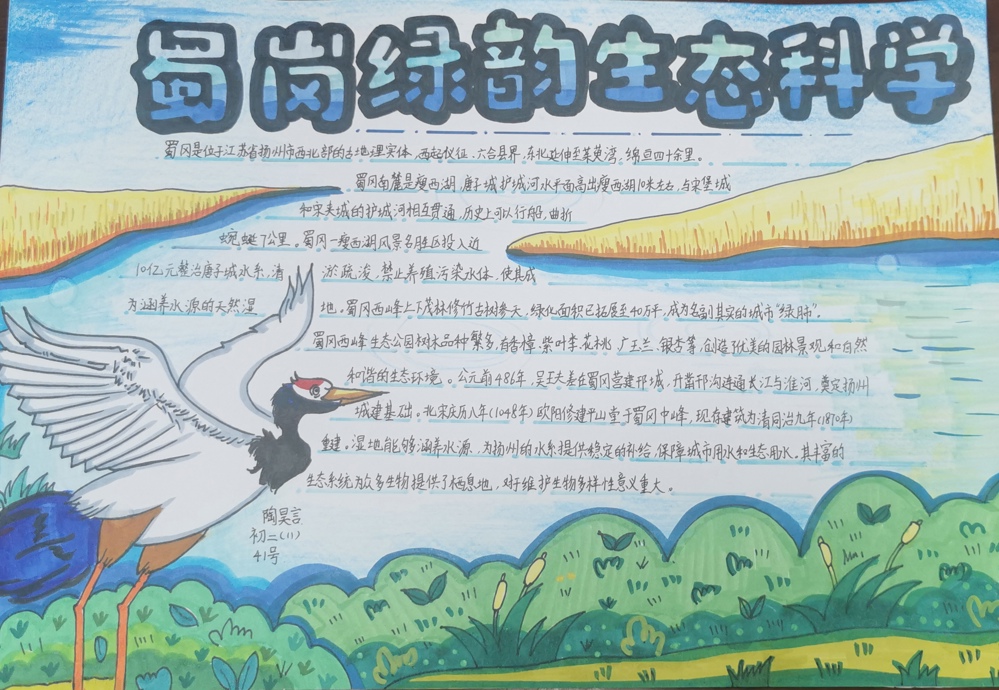 蜀岗绿韵生态科学
蜀冈是位于江苏省扬州市西北部的古地理实体，西起仪征、六合县界，东北延伸至茱萸湾，绵亘四十余里。
蜀冈南麓是瘦西湖，唐子城护城河水平面高出瘦西湖10米左右，与宋堡城
和宋夹城的护城河相互贯通，历史上可以行船，曲折
蜿蜒7公里。蜀冈—瘦西湖风景名胜区投入近
10亿元整治唐子城水系，清淤疏浚，禁止养殖污染水体，使其成
为涵养水源的天然湿地。蜀冈西峰上下茂林修竹古树参天，绿化面积已拓展至40万平，成为名副其实的城市“绿肺”。
蜀冈西峰生态公园树木品种繁多，有香樟、紫叶李、花桃、广玉兰、银杏等，创造了优美的园林景观和自然
和谐的生态环境。公元前486年，吴王夫差在蜀冈营建邗城，开凿邗沟连通长江与淮河，奠定扬州
城建基础。北宋庆历八年（1048年）欧阳修建平山堂于蜀冈中峰，现存建筑为清同治九年（1870年）
重建。湿地能够涵养水源，为扬州的水系提供稳定的补给，保障城市用水和生态用水。其丰富的
生态系统为众多生物提供了栖息地，对于维护生物多样性意义重大。
陶昊言
初二（11）
41号